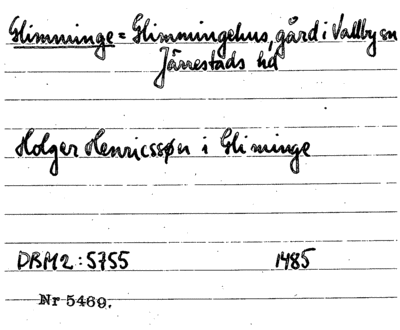 Glimminge = Glimmingehus, gård i Vallby sn
Järrestads hd
Holger Henricssøn i Gliminge
DRM2:5755 1485
Nr 5469.